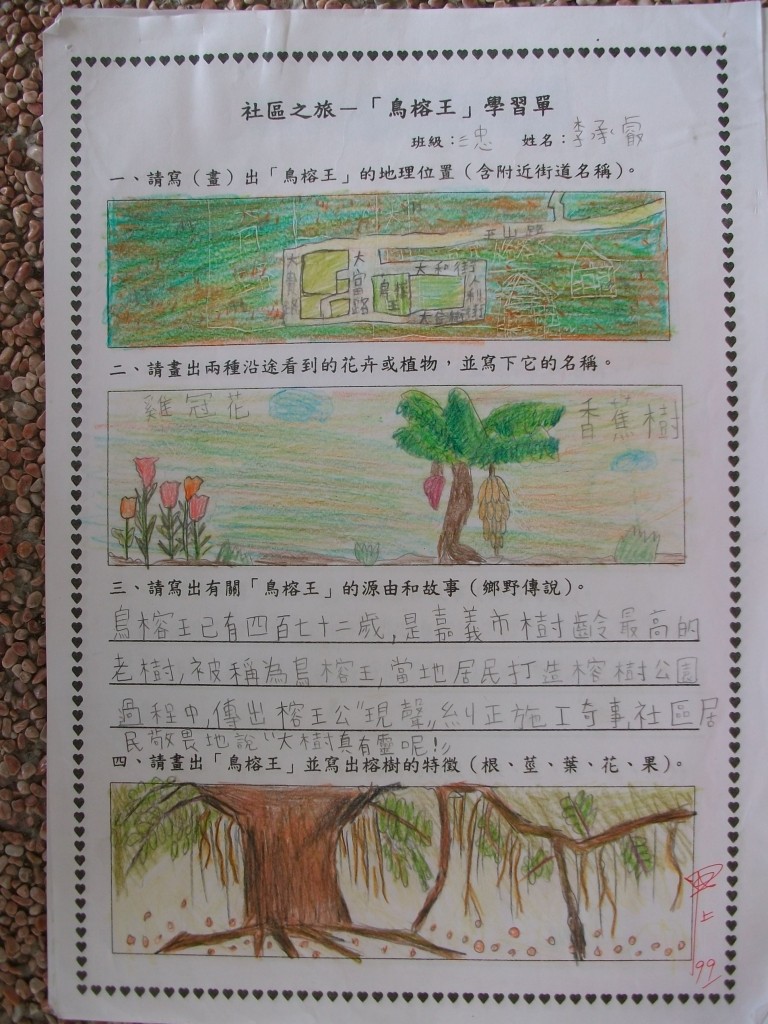 社區之旅－「鳥榕王」學習單
班級：三忠 姓名：李承叡
一、請寫（畫）出「鳥榕王」的地理位置（含附近街道名稱）。
大富路
大和街
鳥榕王
二、請畫出兩種沿途看到的花卉或植物，並寫下它的名稱。
雞冠花
香蕉樹
三、請寫出有關「鳥榕王」的源由和故事（鄉野傳說）。
鳥榕王已有四百七十二歲,是嘉義市樹齡最高的
老樹,被稱為鳥榕王,當地居民打造榕樹公園
過程中,傳出榕王公"現聲",糾正施工奇事,社區居
民敬畏地說"大樹真有靈呢!"
四、請畫出「鳥榕王」並寫出榕樹的特徵（根、莖、葉、花、果）。
甲上
99